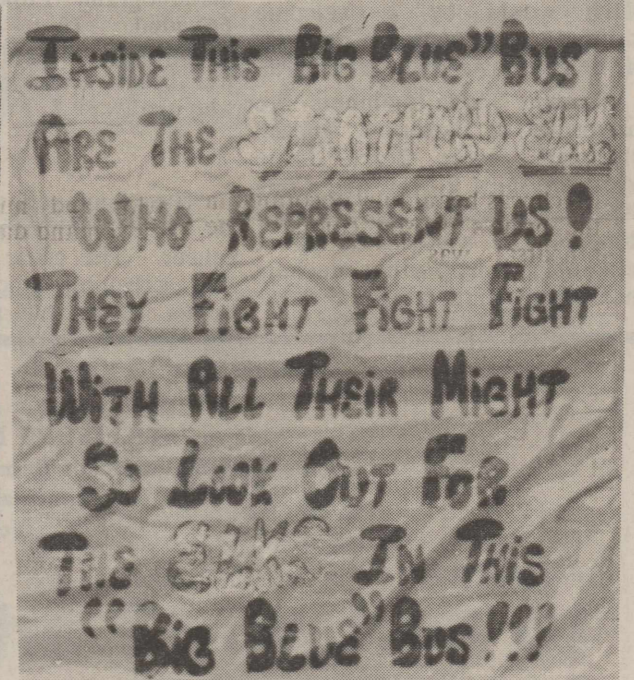 INSIDE THIS BIG BLUE" BUS
ARE THE
WHO REPRESENT US!
THEY FIGHT FIGHT FIGHT
WITH ALL THEIR MIGHT
SO LOOK OUT FOR
THE IN THIS
"BIG BLUE" BUS!!!